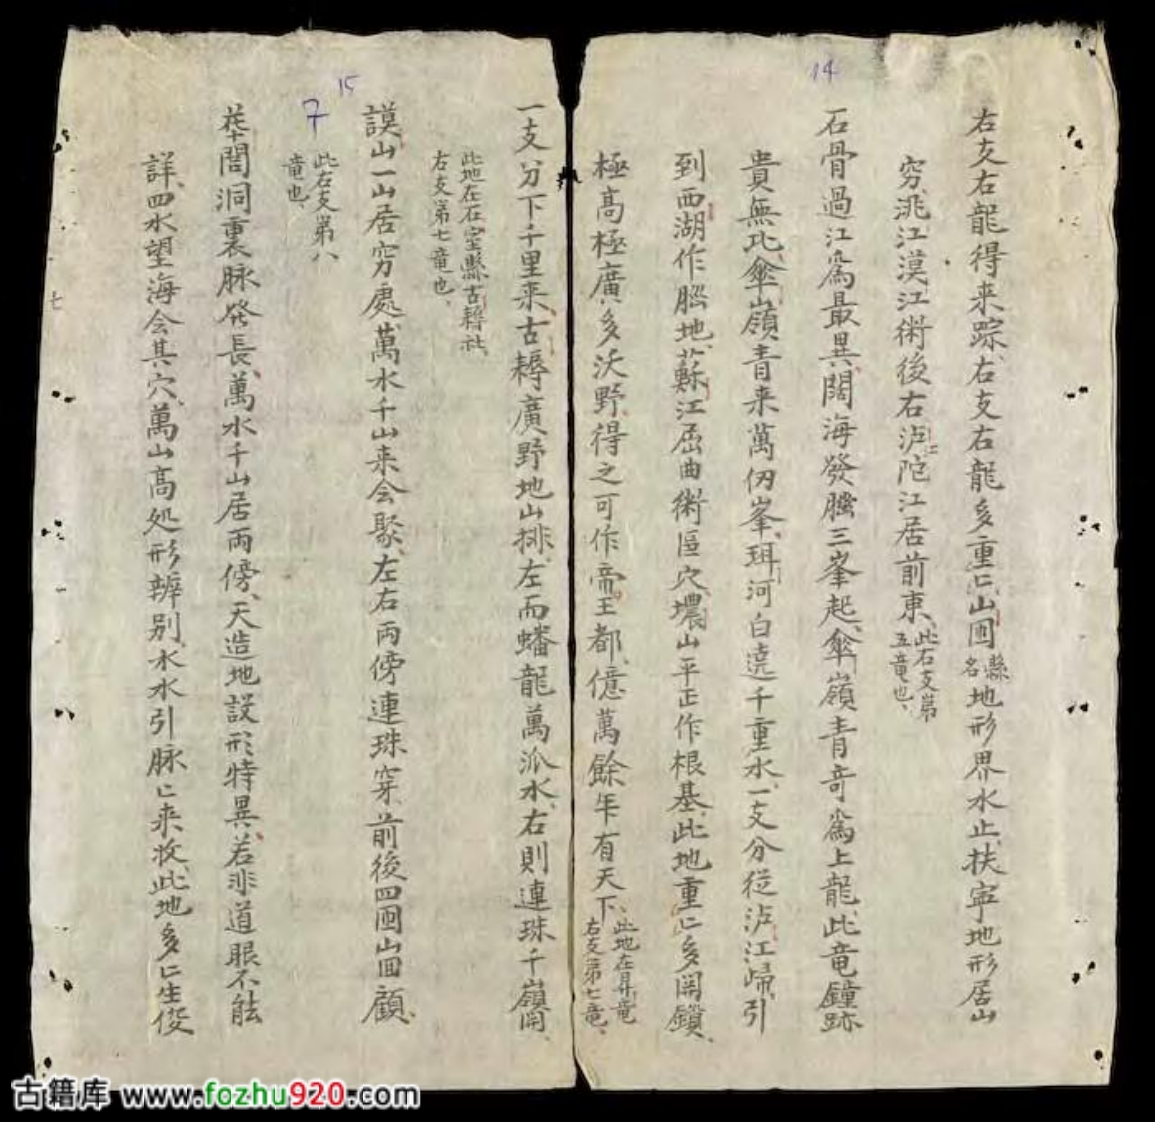 14
右支右龍得来踪右支右龍多重〻山圍縣名地形界水止扶寧地形居山
穷洮江漠江術後右泸陀江居前東此右支第五竜也
石骨過江為最異闊海發腦三峯起傘嶺青竒為上龍此竜鐘跡
貴無比傘嶺青来萬仞峯珥河白遶千重水一支分従泸江歸引
到西湖作腦地蘇江屈曲術區穴壋山平正作根基此地重〻多関鎖
極高極廣多沃野得之可作帝王都億萬餘年有天下此地在昇竜右支第七竜
15
一支分下千里来古耨廣野地山排左而蟠龍萬派水右則連珠千嶺開
此地在石室縣古耨社右支第七竜也
謨山一山居穷處萬水千山来会聚左右兩傍連珠穿前後四囬山回顧
7
此右支第八竜也
閣洞裏脉発長萬水千山居兩傍天造地設形特異若非道眼不能
詳四水望海会其穴萬山高処形辨别水水引脉〻来收此地多〻生俊
七
古籍库 www.fozhu920.com